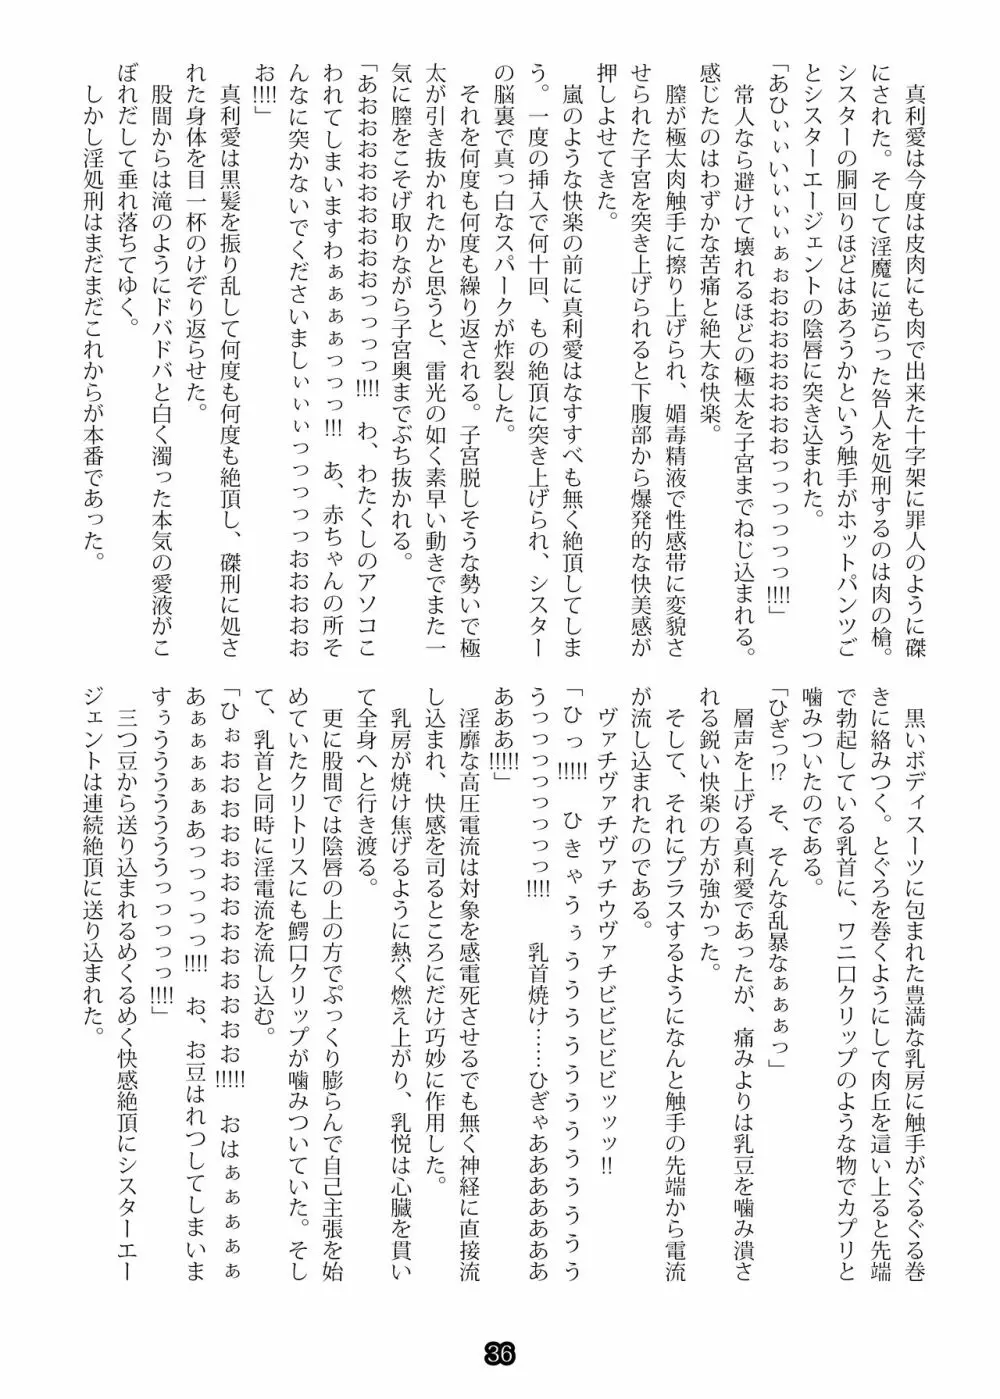 真利愛は今度は皮肉にも肉で出来た十字架に罪人のように磔
にされた。そして淫魔に逆らった咎人を処刑するのは肉の槍。
シスターの胴回りほどはあろうかという触手がホットパンツご
とシスターエージェントの陰唇に突き込まれた。
「あひぃぃいぃぃぃぁぉおおおおおおおおっっっっっ!!!!」
常人なら避けて壊れるほどの極太を子宮までねじ込まれる。
感じたのはわずかな苦痛と絶大な快楽。
膣が極太肉触手に擦り上げられ、媚毒精液で性感帯に変貌さ
せられた子宮を突き上げられると下腹部から爆発的な快美感が
押しよせてきた。
嵐のような快楽の前に真利愛はなすすべも無く絶頂してしま
う。一度の挿入で何十回、もの絶頂に突き上げられ、シスター
の脳裏で真っ白なスパークが炸裂した。
それを何度も何度も繰り返される。子宮脱しそうな勢いで極
太が引き抜かれたかと思うと、雷光の如く素早い動きでまた一
気に膣をこそげ取りながら子宮奥までぶち抜かれる。
「あおおおおおおおおおおっっっっ!!!!　わ、わたくしのアソコこ
われてしまいますわぁぁぁぁっっっ!!!　あ、赤ちゃんの所そ
んなに突かないでくださいましぃぃぃっっっっっおおおおおお
お!!!!」
真利愛は黒髪を振り乱して何度も何度も絶頂し、磔刑に処さ
れた身体を目一杯のけぞり返らせた。
股間からは滝のようにドバドバと白く濁った本気の愛液がこ
ぼれだして垂れ落ちてゆく。
しかし淫処刑はまだまだこれからが本番であった。
黒いボディスーツに包まれた豊満な乳房に触手がぐるぐる巻
きに絡みつく。とぐろを巻くようにして肉丘を這い上ると先端
で勃起している乳首に、ワニ口クリップのような物でカプリと
噛みついたのである。
「ひぎっ!?　そ、そんな乱暴なぁぁぁっ」
層声を上げる真利愛であったが、痛みよりは乳豆を噛み潰さ
れる鋭い快楽の方が強かった。
そして、それにプラスするようになんと触手の先端から電流
が流し込まれたのである。
ヴァチヴァチウヴァチビビビビビッッッ!!
「ひっ!!!!!　ひきゃうぅうううううううううう
うっっっっっっっ!!!!　　乳首焼け……ひぎゃああああああああ
あああ!!!!!」
淫靡な高圧電流は対象を感電死させるでも無く神経に直接流
し込まれ、快感を司るところにだけ巧妙に作用した。
乳房が焼け焦げるように熱く燃え上がり、乳悦は心臓を貫い
て全身へと行き渡る。
更に股間では陰唇の上の方でぷっくり膨らんで自己主張を始
めていたクリトリスにも鰐口クリップが噛みついていた。そし
て、乳首と同時に淫電流を流し込む。
「ひぉおおおおおおおおおおおおおお!!!!!　おはぁぁぁぁぁ
あぁぁぁぁぁあっっっっっ!!!!　お、お豆はれつしてしまいま
すぅうううううううっっっっっ!!!!」
三つ豆から送り込まれるめくるめく快感絶頂にシスターエー
ジェントは連続絶頂に送り込まれた。
36